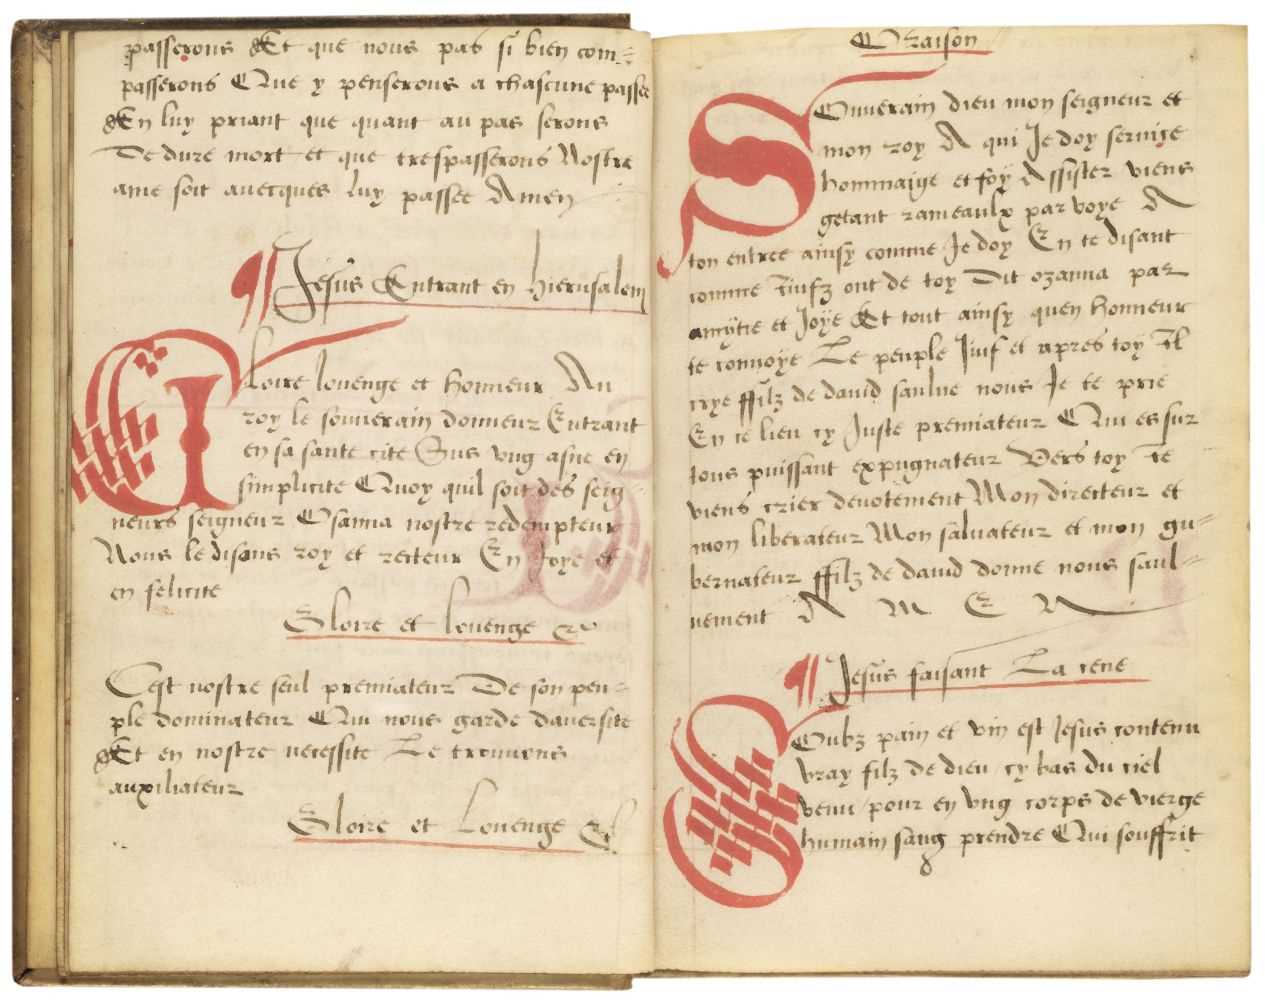 passerons Et que nous pas si bien com-
passerons Que y penserons a chascune passee
En luy priant que quant au pas serons
De dure mort et que trespasserons Nostre
ame soit avecques luy passee Amen
¶ Jesus Entrant en Hierusalem
Gloire louenge et honneur Au
roy le souverain donneur Entrant
en sa sante cite Sus ung asne en
simplicite Quoy quil soit des seig-
neurs seigneur Osanna nostre redempteur
Nous le disons roy et recteur En joye et
en felicite
Gloire et louenge &c
Cest nostre seul premiateur De son peu-
ple dominateur Qui nous garde daversite
Et en nostre necessite Le trouvons
auxiliateur
Gloire et Louenge &c
Oraison
Souverain dieu mon seigneur et
mon roy A qui Je doy service
hommaige et foy Assister viens
getant rameaulx par voye A
ton entree ainsy comme Je doy En te disant
comme juifz ont de toy Dit ozanna par
amytie et Joye Et tout ainsy quen honneur
te convoye Le peuple Juif et apres toy Il
crye ffilz de david saulve nous Je te prie
En ce lieu cy Juste premiateur Qui es sur
tous puissant expugnateur Vers toy Je
viens crier devotement Mon directeur et
mon liberateur Mon salvateur et mon gu-
bernateur ffilz de david donne nous saul-
vement A M E N
¶ Jesus faisant La cene
Soubz pain et vin est Jesus contenu
Vray filz de dieu / cy bas du ciel
venu / pour en ung corps de vierge
humain sang prendre Qui souffrit